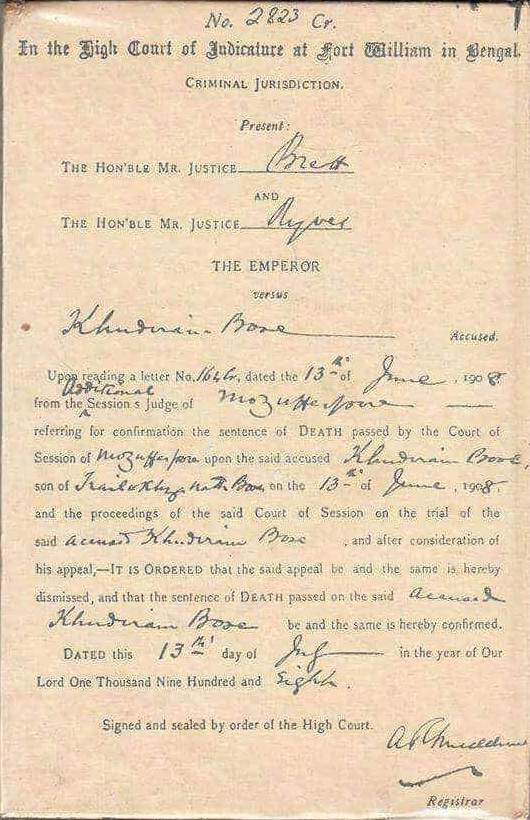 No. 2823 Cr.
In the High Court of Judicature at Fort William in Bengal.
CRIMINAL JURISDICTION.
Present:
THE HON'BLE MR. JUSTICE Brett
AND
THE HON'BLE MR. JUSTICE Ryves
THE EMPEROR
versus
Khudiram Bose
Accused.
Upon reading a letter No. 164 Cr, dated the 13th of June, 1908.
Additional
from the Sessions Judge of Mozufferpore
referring for confirmation the sentence of DEATH passed by the Court of
Session of Mozufferpore upon the said accused Khudiram Bose,
son of Trailokhya Nath Bose on the 13th of June, 1908,
and the proceedings of the said Court of Session on the trial of the
said accused Khudiram Bose, and after consideration of
his appeal,—IT IS ORDERED that the said appeal be and the same is hereby
dismissed, and that the sentence of DEATH passed on the said accused
Khudiram Bose be and the same is hereby confirmed.
DATED this 13th day of July in the year of Our
Lord One Thousand Nine Hundred and Eight.
Signed and sealed by order of the High Court.
Registrar